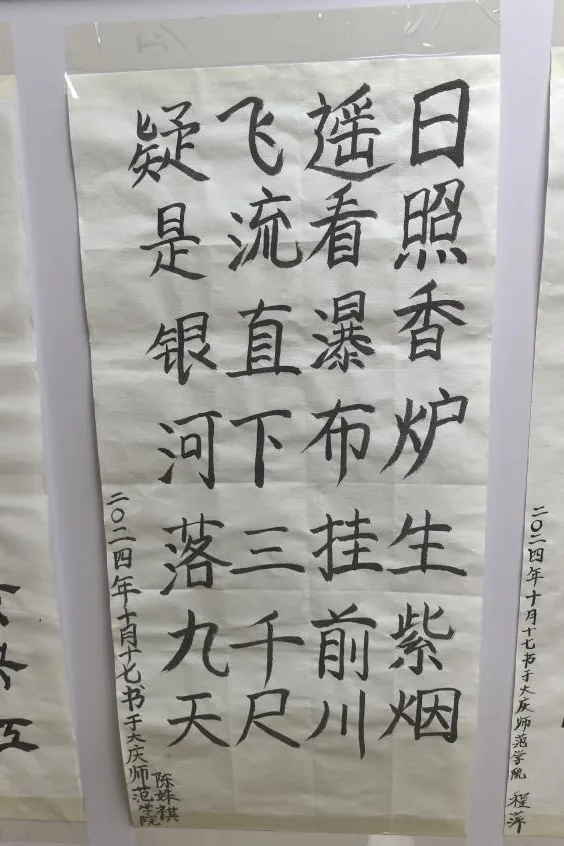 日照香炉生紫烟
遥看瀑布挂前川
飞流直下三千尺
疑是银河落九天
二〇二四年十月十七书于大庆师范学院
陈姝祺
二〇二四年十月十七书于大庆师范学院 程萍